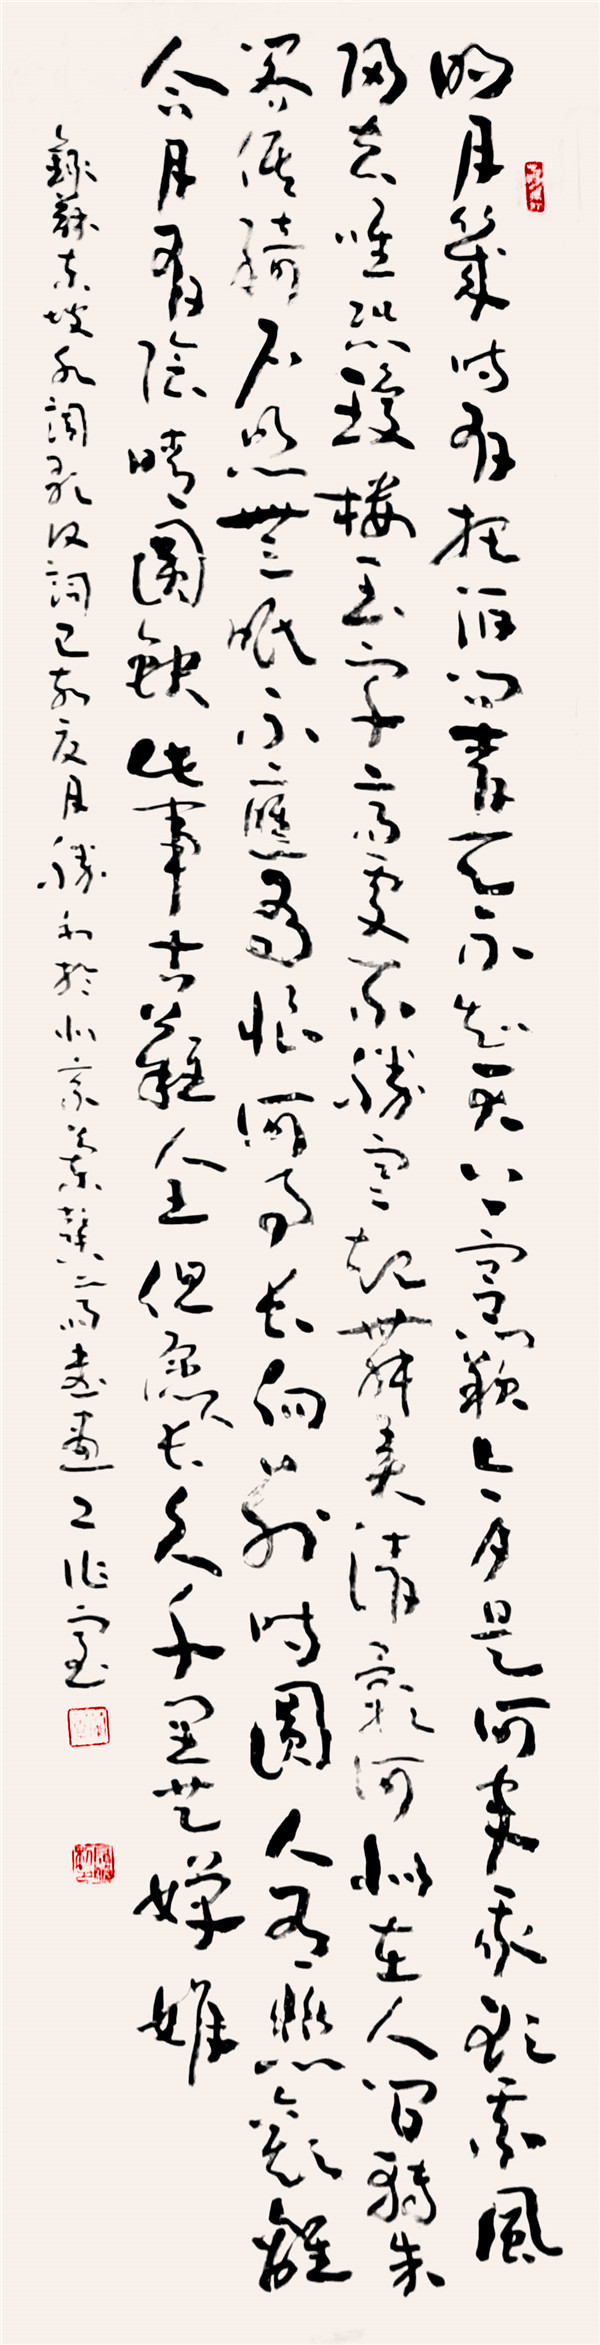 明月幾時有把酒問青天不知天上宮闕今夕是何年我欲乘風
歸去唯恐瓊樓玉宇高處不勝寒起舞弄清影何似在人間轉朱
閣低綺戶照無眠不應有恨何事長向別時圓人有悲歡離
合月有陰晴圓缺此事古難全但願人長久千里共嬋娟
錄蘇東坡水調歌頭詞己亥夏月勝利於北京齋書畫工作室